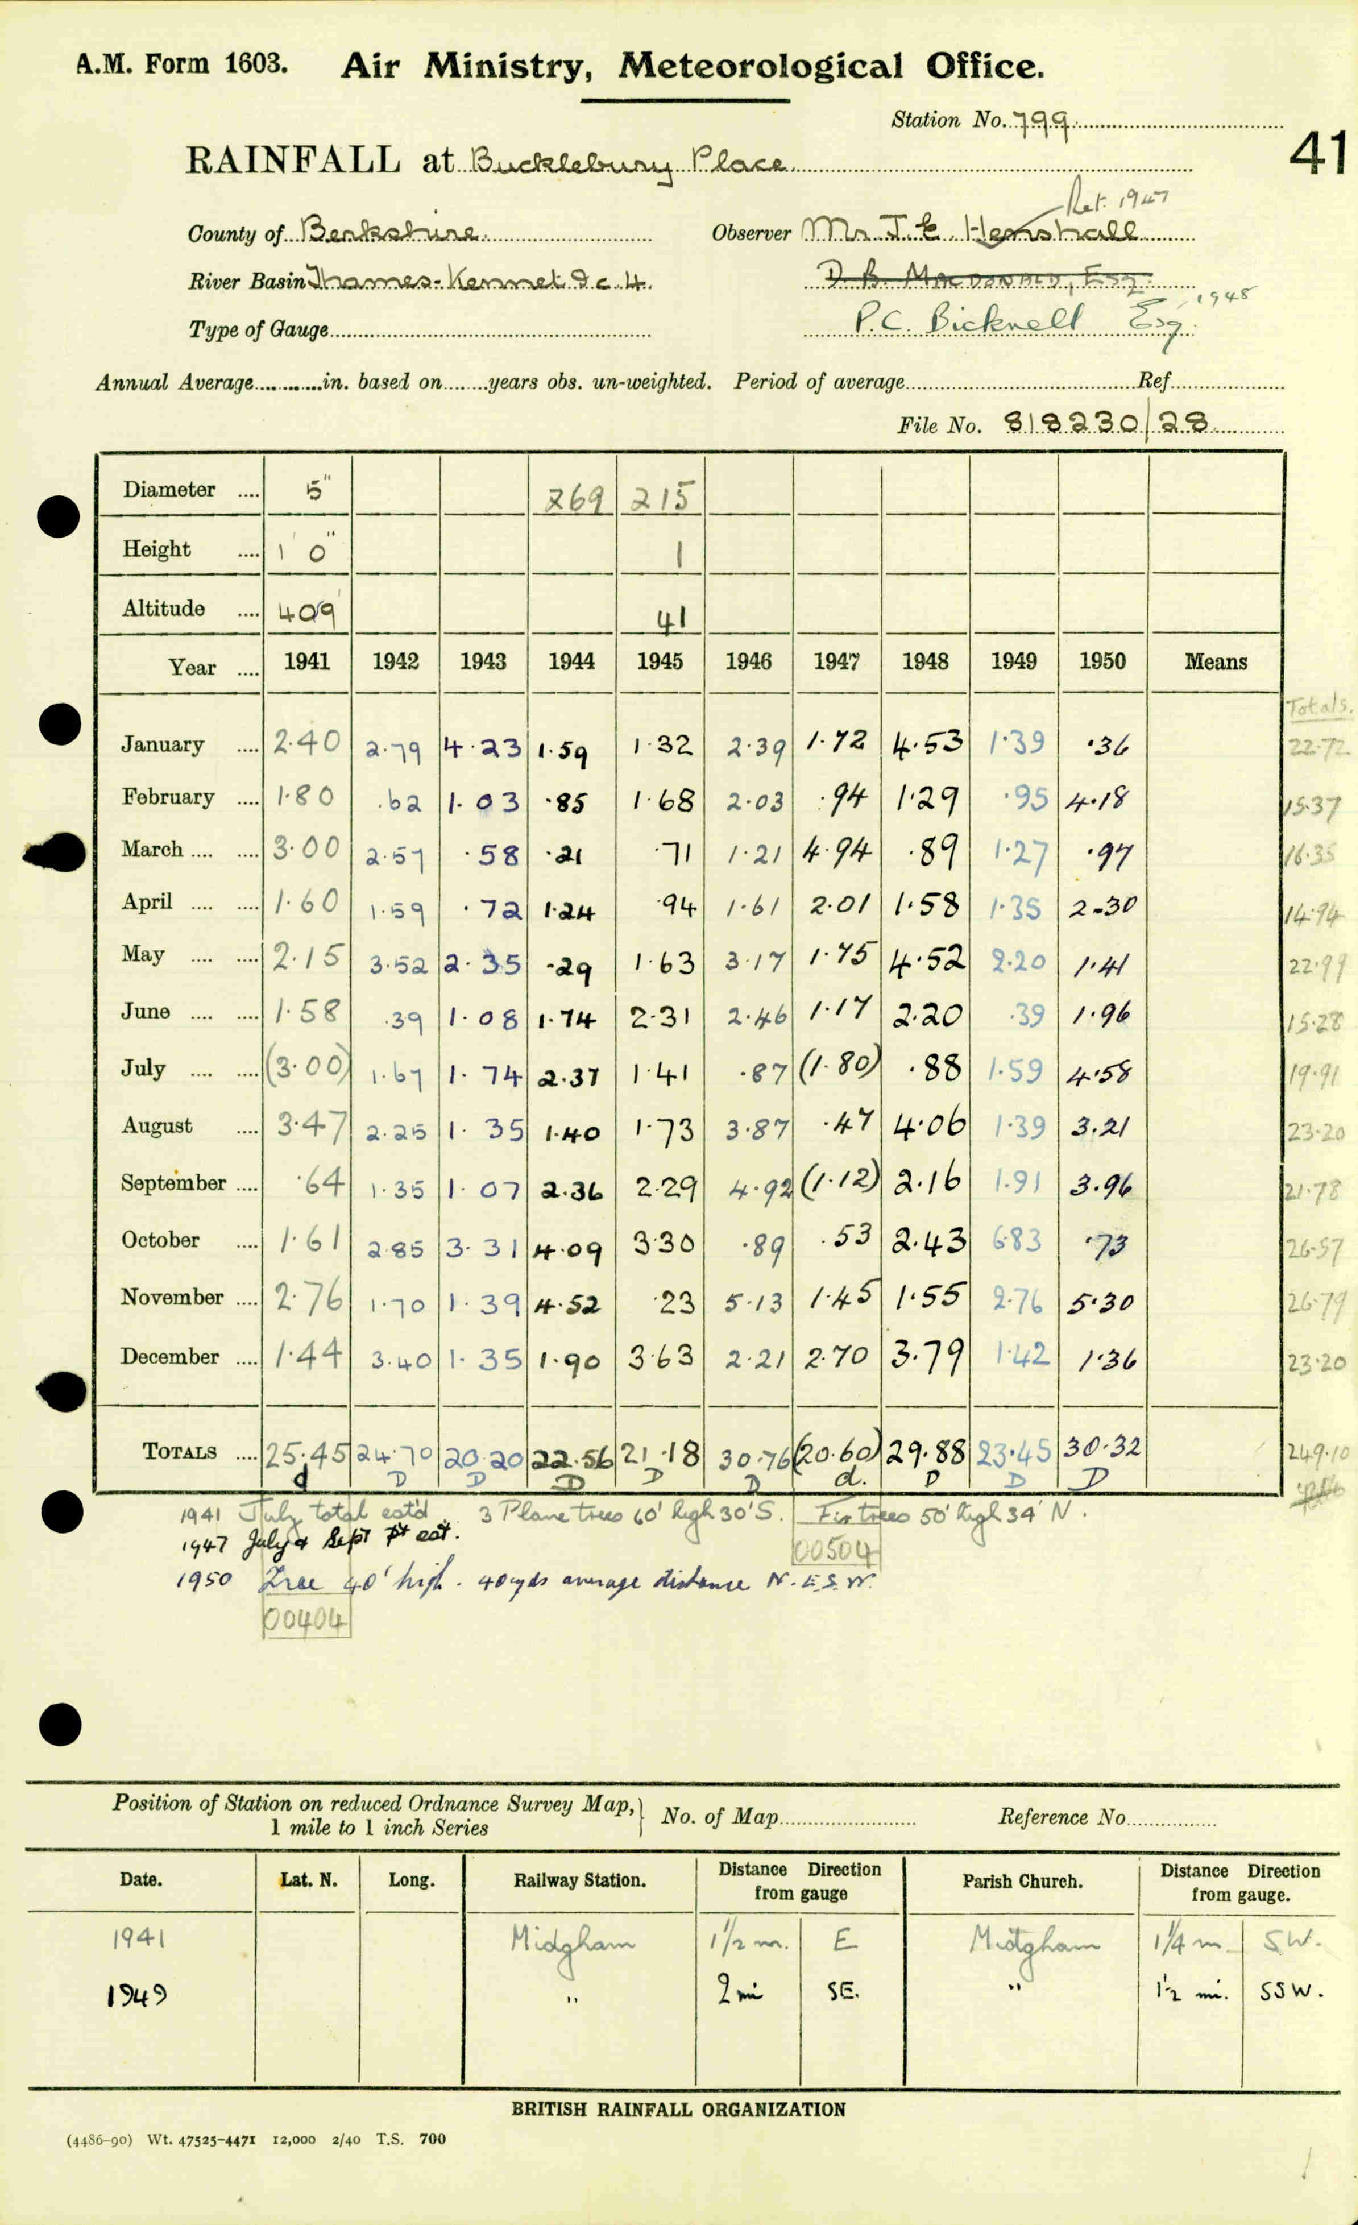 A.M. Form 1603. Air Ministry, Meteorological Office.
Station No. 799
41
RAINFALL at Bucklebury Place
Ret. 1947
County of Berkshire Observer Mr J. E. Henshall
River Basin Thames-Kennet &c. 4. D. B. MACDONALD, ESQ.
Type of Gauge P.C. Bicknell Esq. 1948
Annual Average in. based on years obs. un-weighted. Period of average Ref
File No. 818230/28
Diameter .... 5" 269 215
Height .... 1' 0" 1
Altitude .... 409' 41
Year .... 1941 1942 1943 1944 1945 1946 1947 1948 1949 1950 Means
Totals.
January .... 2.40 2.79 4.23 1.59 1.32 2.39 1.72 4.53 1.39 .36 22.72
February .... 1.80 .62 1.03 .85 1.68 2.03 .94 1.29 .95 4.18 15.37
March .... .... 3.00 2.57 .58 .21 .71 1.21 4.94 .89 1.27 .97 16.35
April .... .... 1.60 1.59 .72 1.24 .94 1.61 2.01 1.58 1.35 2.30 14.94
May .... .... 2.15 3.52 2.35 .29 1.63 3.17 1.75 4.52 2.20 1.41 22.99
June .... .... 1.58 .39 1.08 1.74 2.31 2.46 1.17 2.20 .39 1.96 15.28
July .... .... (3.00) 1.67 1.74 2.37 1.41 .87 (1.80) .88 1.59 4.58 19.91
August .... 3.47 2.25 1.35 1.40 1.73 3.87 .47 4.06 1.39 3.21 23.20
September .... .64 1.35 1.07 2.36 2.29 4.92 (1.12) 2.16 1.91 3.96 21.78
October .... 1.61 2.85 3.31 4.09 3.30 .89 .53 2.43 6.83 .73 26.57
November .... 2.76 1.70 1.39 4.52 .23 5.13 1.45 1.55 2.76 5.30 26.79
December .... 1.44 3.40 1.35 1.90 3.63 2.21 2.70 3.79 1.42 1.36 23.20
TOTALS .... 25.45 24.70 20.20 22.56 21.18 30.76 (20.60) 29.88 23.45 30.32 249.10
d D D D D D d. D D D
1941 July total est'd. 3 Plane trees 60' high 30' S. Fir trees 50' high 34' N.
1947 July & Sept pt est. 00504
1950 Tree 40' high. 40yds average distance N.E.S.W.
00404
Position of Station on reduced Ordnance Survey Map, 1 mile to 1 inch Series } No. of Map Reference No.
Date. Lat. N. Long. Railway Station. Distance Direction from gauge Parish Church. Distance Direction from gauge.
1941 Midgham 1½ m. E Midgham 1¼ m. S.W.
1949 " 2 mi SE. " 1½ mi. SSW.
BRITISH RAINFALL ORGANIZATION
(4486-90) Wt. 47525-4471 12,000 2/40 T.S. 700